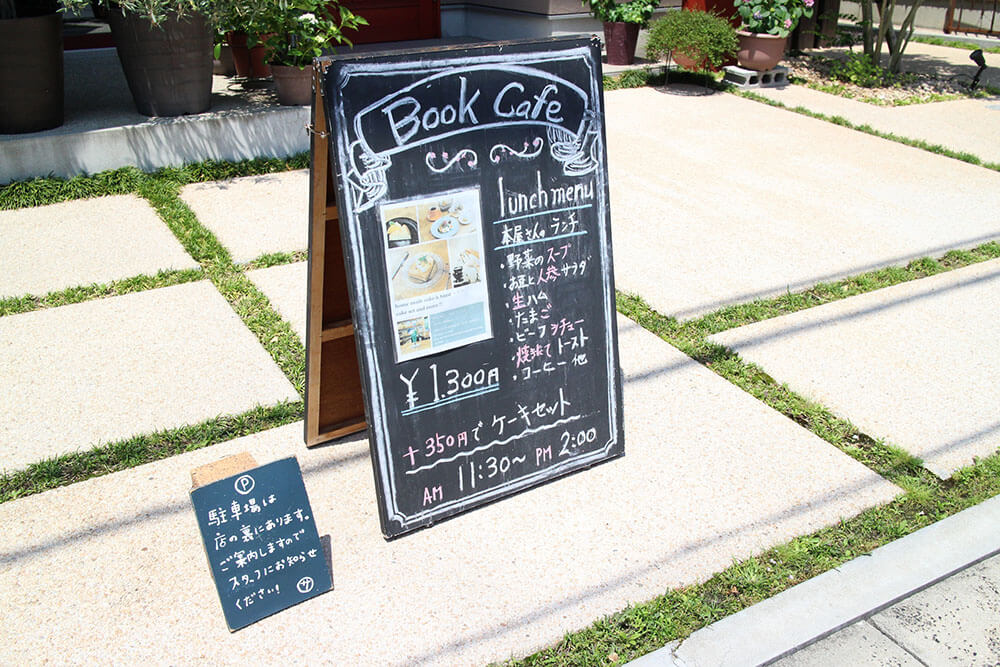 Book Cafe
lunch menu
本屋さんの ランチ
・野菜の スープ
・お豆と人参サラダ
・生ハム
・たまご
・ビーフシチュー
・焼きたて トースト
・コーヒー 他
home made cake & bake
cake set and more!!
¥1.300円
+350円で ケーキセット
AM 11:30~ PM 2:00
P
駐車場は
店の裏にあります。
ご案内しますので
スタッフにお知らせ
ください!
サ